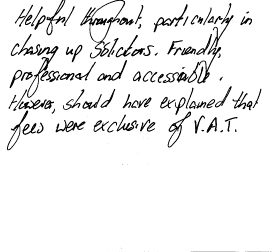 Helpful throughout, particularly in
chasing up Solicitors. Friendly,
professional and accessible.
However, should have explained that
fees were exclusive of V.A.T.